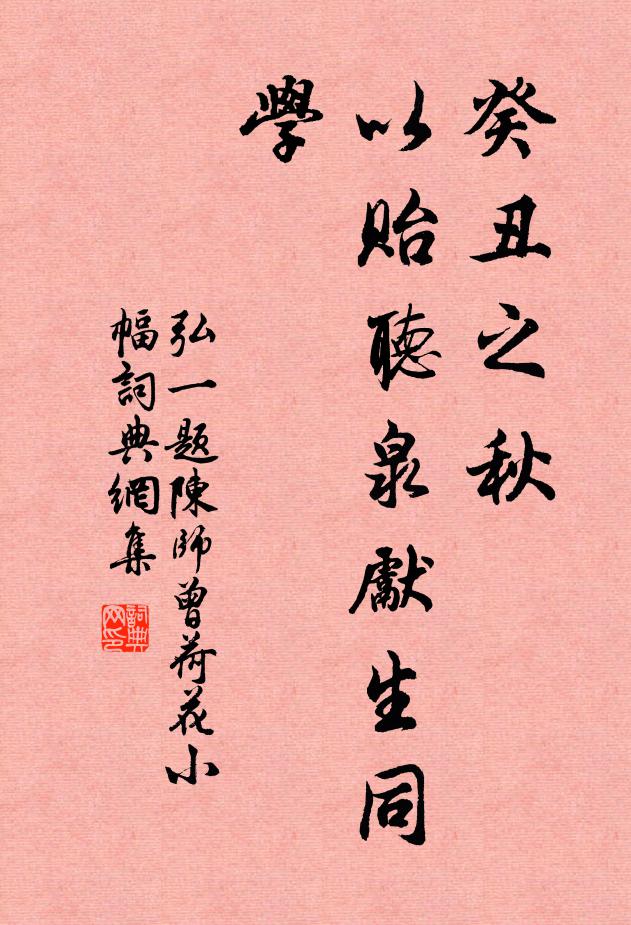 癸丑之秋
以貽聽泉獻生同
學
弘一題陳師曾荷花小
幅詞典網集
詞典
网印